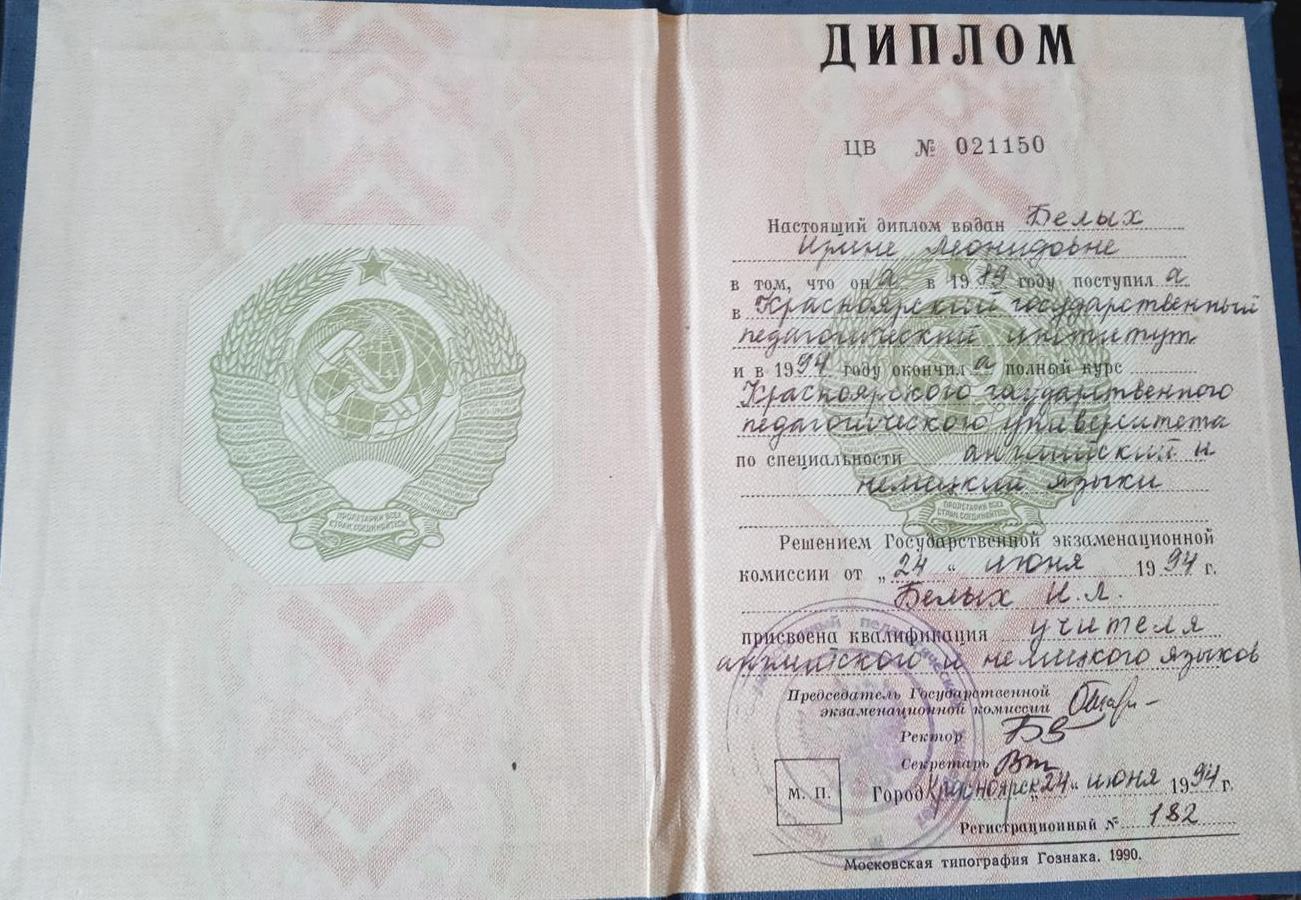 ПРОЛЕТАРИИ ВСЕХ
СТРАН, СОЕДИНЯЙТЕСЬ!
ДИПЛОМ
ЦВ № 021150
Настоящий диплом выдан Белых
Ирине Леонидовне
в том, что она в 1989 году поступила
в Красноярский государственный
педагогический институт
и в 1994 году окончила полный курс
Красноярского государственного
педагогического университета
по специальности английский и
немецкий языки
ПРОЛЕТАРИИ ВСЕХ
СТРАН, СОЕДИНЯЙТЕСЬ!
Решением Государственной экзаменационной
комиссии от „24“ июня 1994 г.
Белых И. Л.
присвоена квалификация учителя
английского и немецкого языков
Председатель Государственной
экзаменационной комиссии
Ректор
Секретарь
М. П.
Город Красноярск „24“ июня 1994 г.
Регистрационный № 182
Московская типография Гознака. 1990.